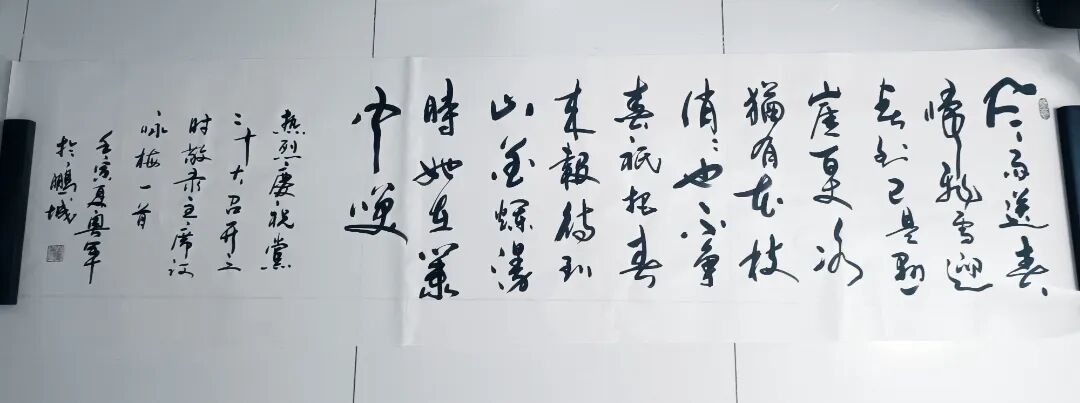 风雨送春
歸飛雪迎
春到已是悬
崖百丈冰
猶有花枝
俏俏也不争
春祇把春
来報待到
山花爛漫
時她在叢
中笑
热烈慶祝黨
二十大召开之
时敬录主席词
咏梅一首
壬寅夏粤军
於鹏城